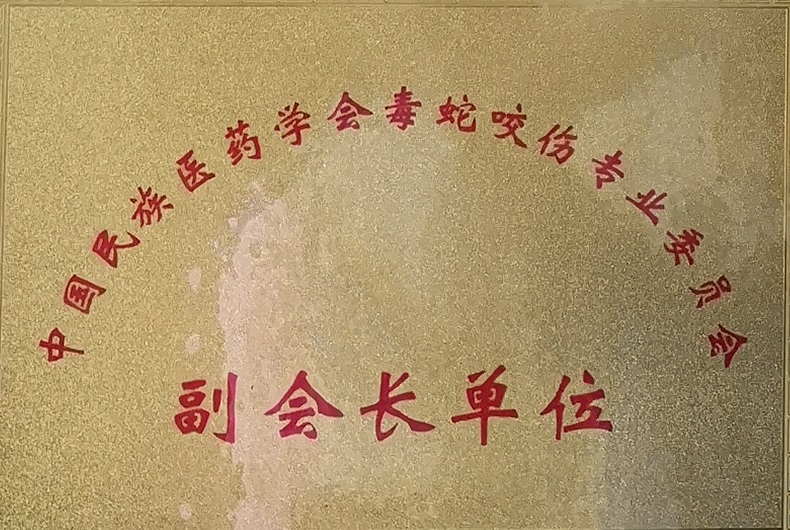 中国民族医药学会毒蛇咬伤专业委员会
副会长单位